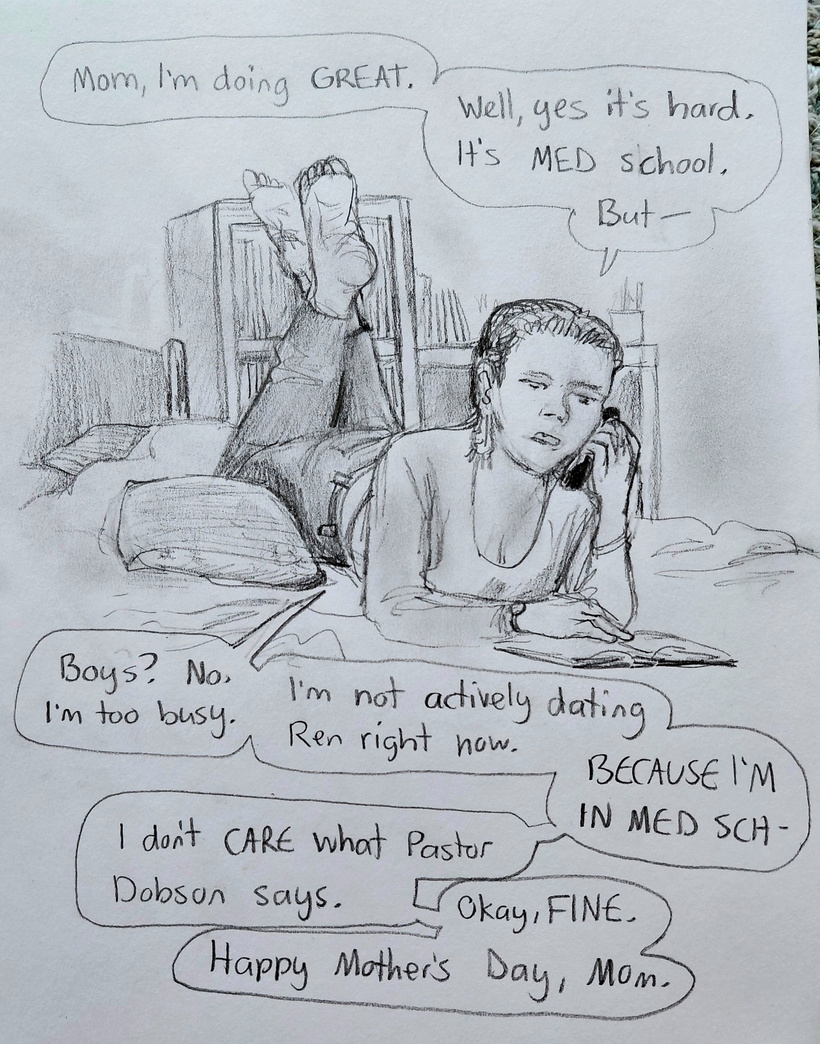 Mom, I'm doing GREAT.
Well, yes it's hard.
It's MED school.
But—
Boys? No.
I'm too busy.
I'm not actively dating
Ren right now.
BECAUSE I'M
IN MED SCH-
I don't CARE what Pastor
Dobson says.
Okay, FINE.
Happy Mother's Day, Mom.